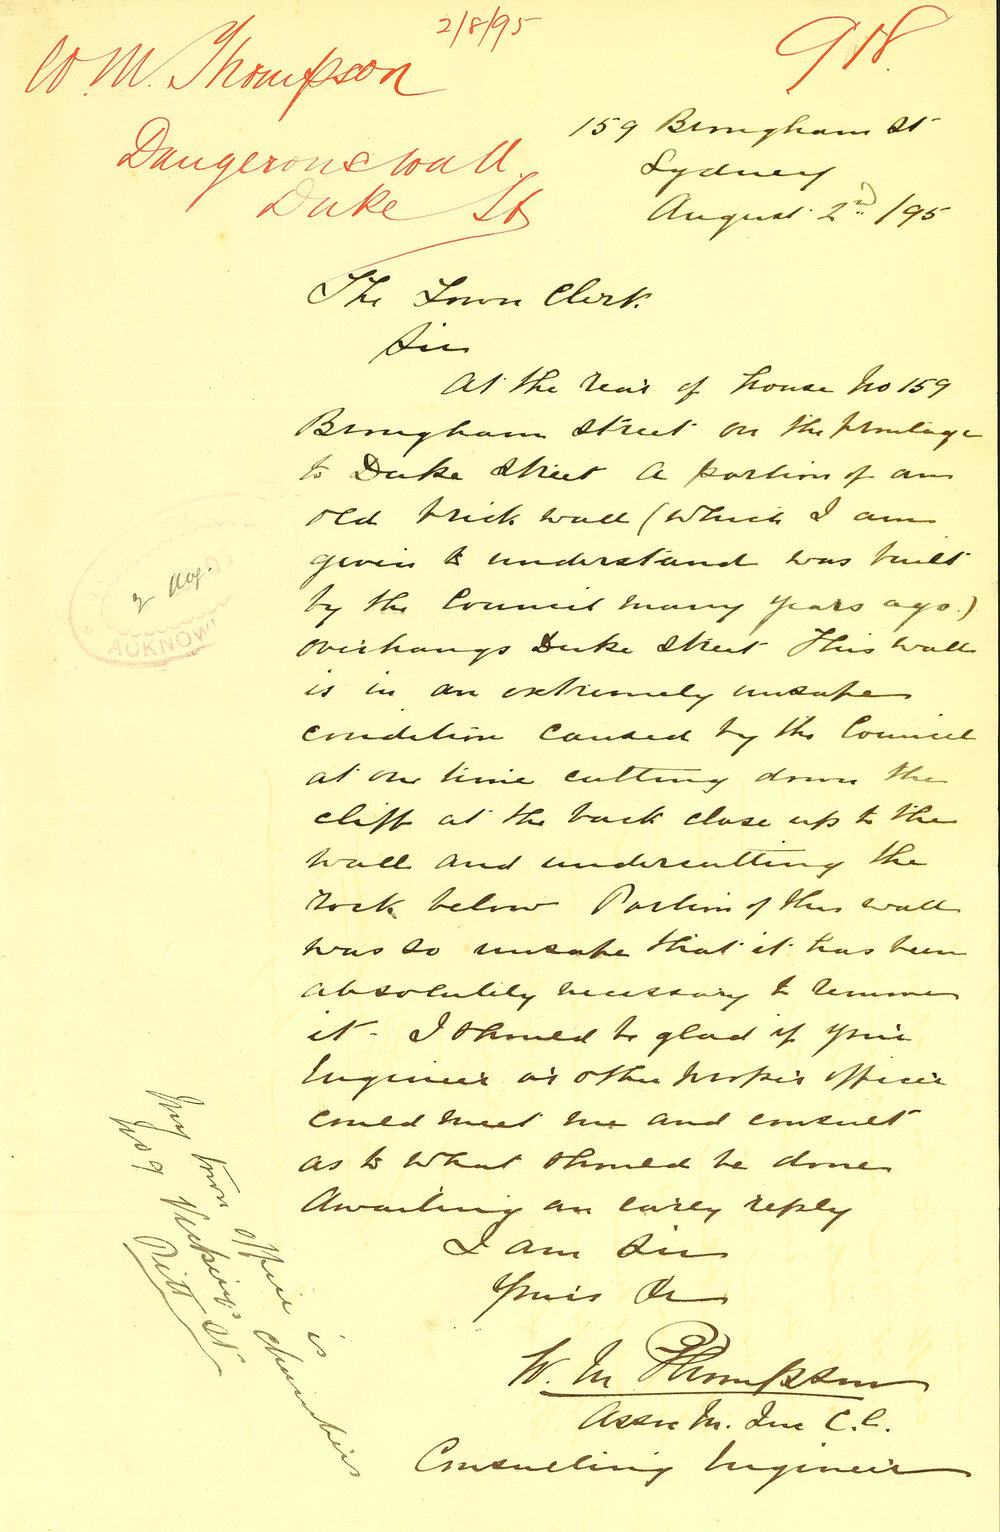 2/8/95
W. M. Thompson
918
Dangerous wall
Duke St
159 Brougham St
Sydney
August 2nd /95
The Town Clerk
Sir
At the rear of house No 159
Brougham Street on the frontage
to Duke Street a portion of an
old brick wall (which I am
given to understand was built
by the Council many years ago.)
overhangs Duke Street This wall
is in an extremely unsafe
condition caused by the Council
at one time cutting down the
cliff at the back close up to the
wall and undercutting the
rock below Portion of this wall
was so unsafe that it has been
absolutely necessary to remove
it. I should be glad if your
Engineer or other proper officer
could meet me and consult
as to what should be done
Awaiting an early reply
I am Sir
Yours &c
W. M. Thompson
Assoc M. Inst C.E.
Consulting Engineer
2 Aug.
ACKNOW
My town office is
No 9 Vickery's Chambers
Pitt St